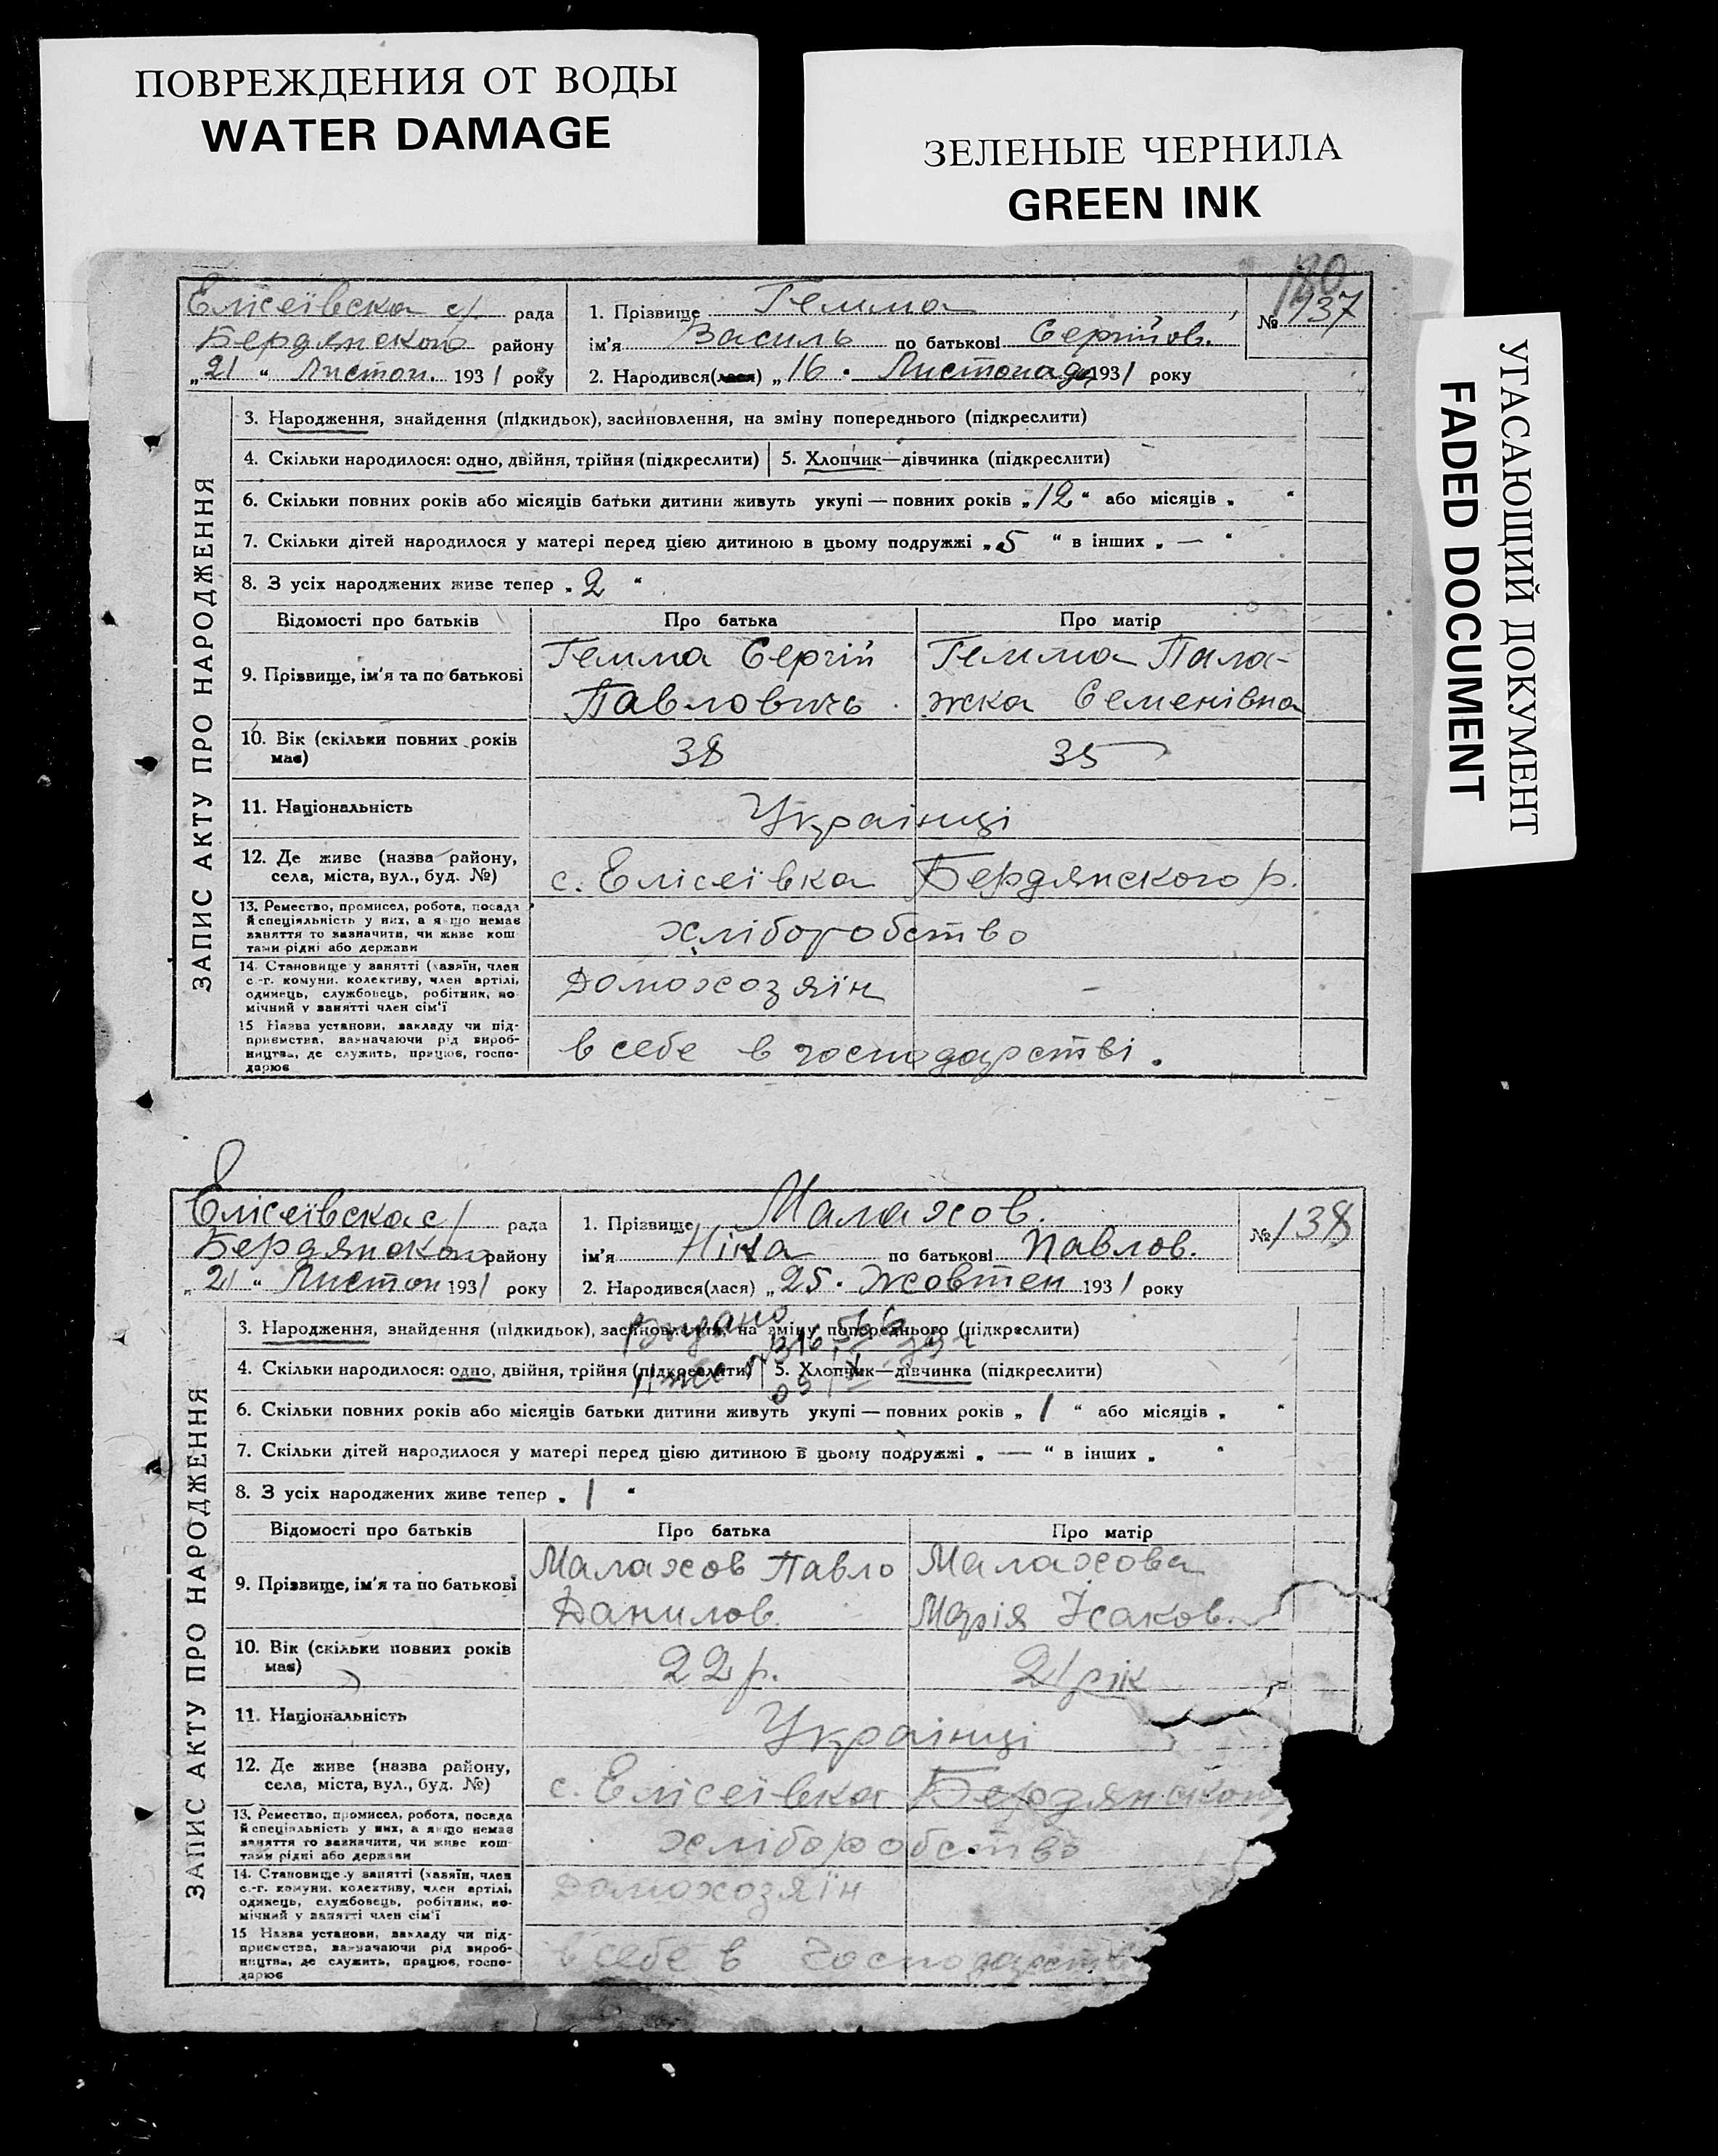 ПОВРЕЖДЕНИЯ ОТ ВОДЫ
WATER DAMAGE
ЗЕЛЕНЫЕ ЧЕРНИЛА
GREEN INK
УГАСАЮЩИЙ ДОКУМЕНТ
FADED DOCUMENT
180
Елісеївска с/ рада
Бердянского району
„21 “ Листоп. 1931 року
1. Прізвище Гемма
ім'я Василь по батькові Сергійов.
№ 137
2. Народився(лася) „16 . Листопада 1931 року
ЗАПИС АКТУ ПРО НАРОДЖЕННЯ
3. Народження, знайдення (підкидьок), засиновлення, на зміну попереднього (підкреслити)
4. Скільки народилося: одно, двійня, трійня (підкреслити) 5. Хлопчик—дівчинка (підкреслити)
6. Скільки повних років або місяців батьки дитини живуть укупі — повних років „12“ або місяців „ “
7. Скільки дітей народилося у матері перед цією дитиною в цьому подружжі „5 “ в інших „ — “
8. З усіх народжених живе тепер „ 2 “
Відомості про батьків Про батька Про матір
9. Прізвище, ім'я та по батькові
Гемма Сергій
Павловичь
Гемма Пала-
жка Семенівна
10. Вік (скільки повних років
має)
38 35
11. Національність
Українці
12. Де живе (назва району,
села, міста, вул., буд. №)
с. Елісеївка Бердянского р.
13. Ремество, промисел, робота, посада
й спеціяльність у них, а якщо немає
заняття то зазначити, чи живе кош
тами рідні або держави
хліборобство
14. Становище у занятті (хазяїн, член
с.-г. комуни, колективу, член артілі,
одинець, службовець, робітник, по-
мічний у занятті член сім'ї
Домохозяїн —
15 Назва установи, закладу чи під-
приємства, зазначаючи рід вироб-
ництва, де служить, працює, госпо-
дарює
в себе в господарстві.
Елісеївска с/ рада
Бердянского району
„ 21 “ Листоп 1931 року
1. Прізвище Малахов.
ім'я Ніна по батькові Павлов.
№ 138
2. Народився(лася) „25. Жовтен 1931 року
ЗАПИС АКТУ ПРО НАРОДЖЕННЯ
3. Народження, знайдення (підкидьок), засиновлення, на зміну попереднього (підкреслити)
Видано
4. Скільки народилося: одно, двійня, трійня (підкреслити) 5. Хлопчик—дівчинка (підкреслити)
6. Скільки повних років або місяців батьки дитини живуть укупі — повних років „ 1 “ або місяців „ “
7. Скільки дітей народилося у матері перед цією дитиною в цьому подружжі „ — “ в інших „ “
8. З усіх народжених живе тепер „ 1 “
Відомості про батьків Про батька Про матір
9. Прізвище, ім'я та по батькові
Малахов Павло
Данилов.
Малахова
Марія Ісаков.
10. Вік (скільки повних років
має)
22 р. 21 рік
11. Національність
Українці
12. Де живе (назва району,
села, міста, вул., буд. №)
с. Елісеївка Бердянского
13. Ремество, промисел, робота, посада
й спеціяльність у них, а якщо немає
заняття то зазначити, чи живе кош-
тами рідні або держави
хліборобство
14. Становище у занятті (хазяїн, член
с.-г. комуни, колективу, член артілі,
одинець, службовець, робітник, по-
мічний у занятті член сім'ї
Домохозяїн
15 Назва установи, закладу чи під-
приємства, зазначаючи рід вироб-
ництва, де служить, працює, госпо-
дарює
в себе в господарстві